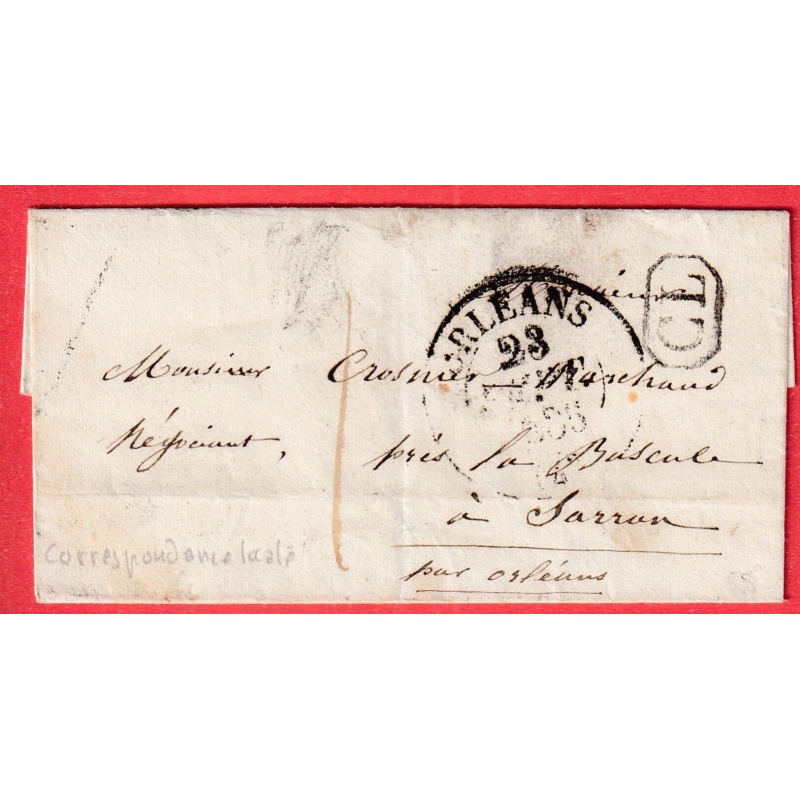 CL
ORLÉANS
23
Monsieur Crosnier Marchand
Négociant, près la Bascule
à Sarran
par orléans
Correspondance locale